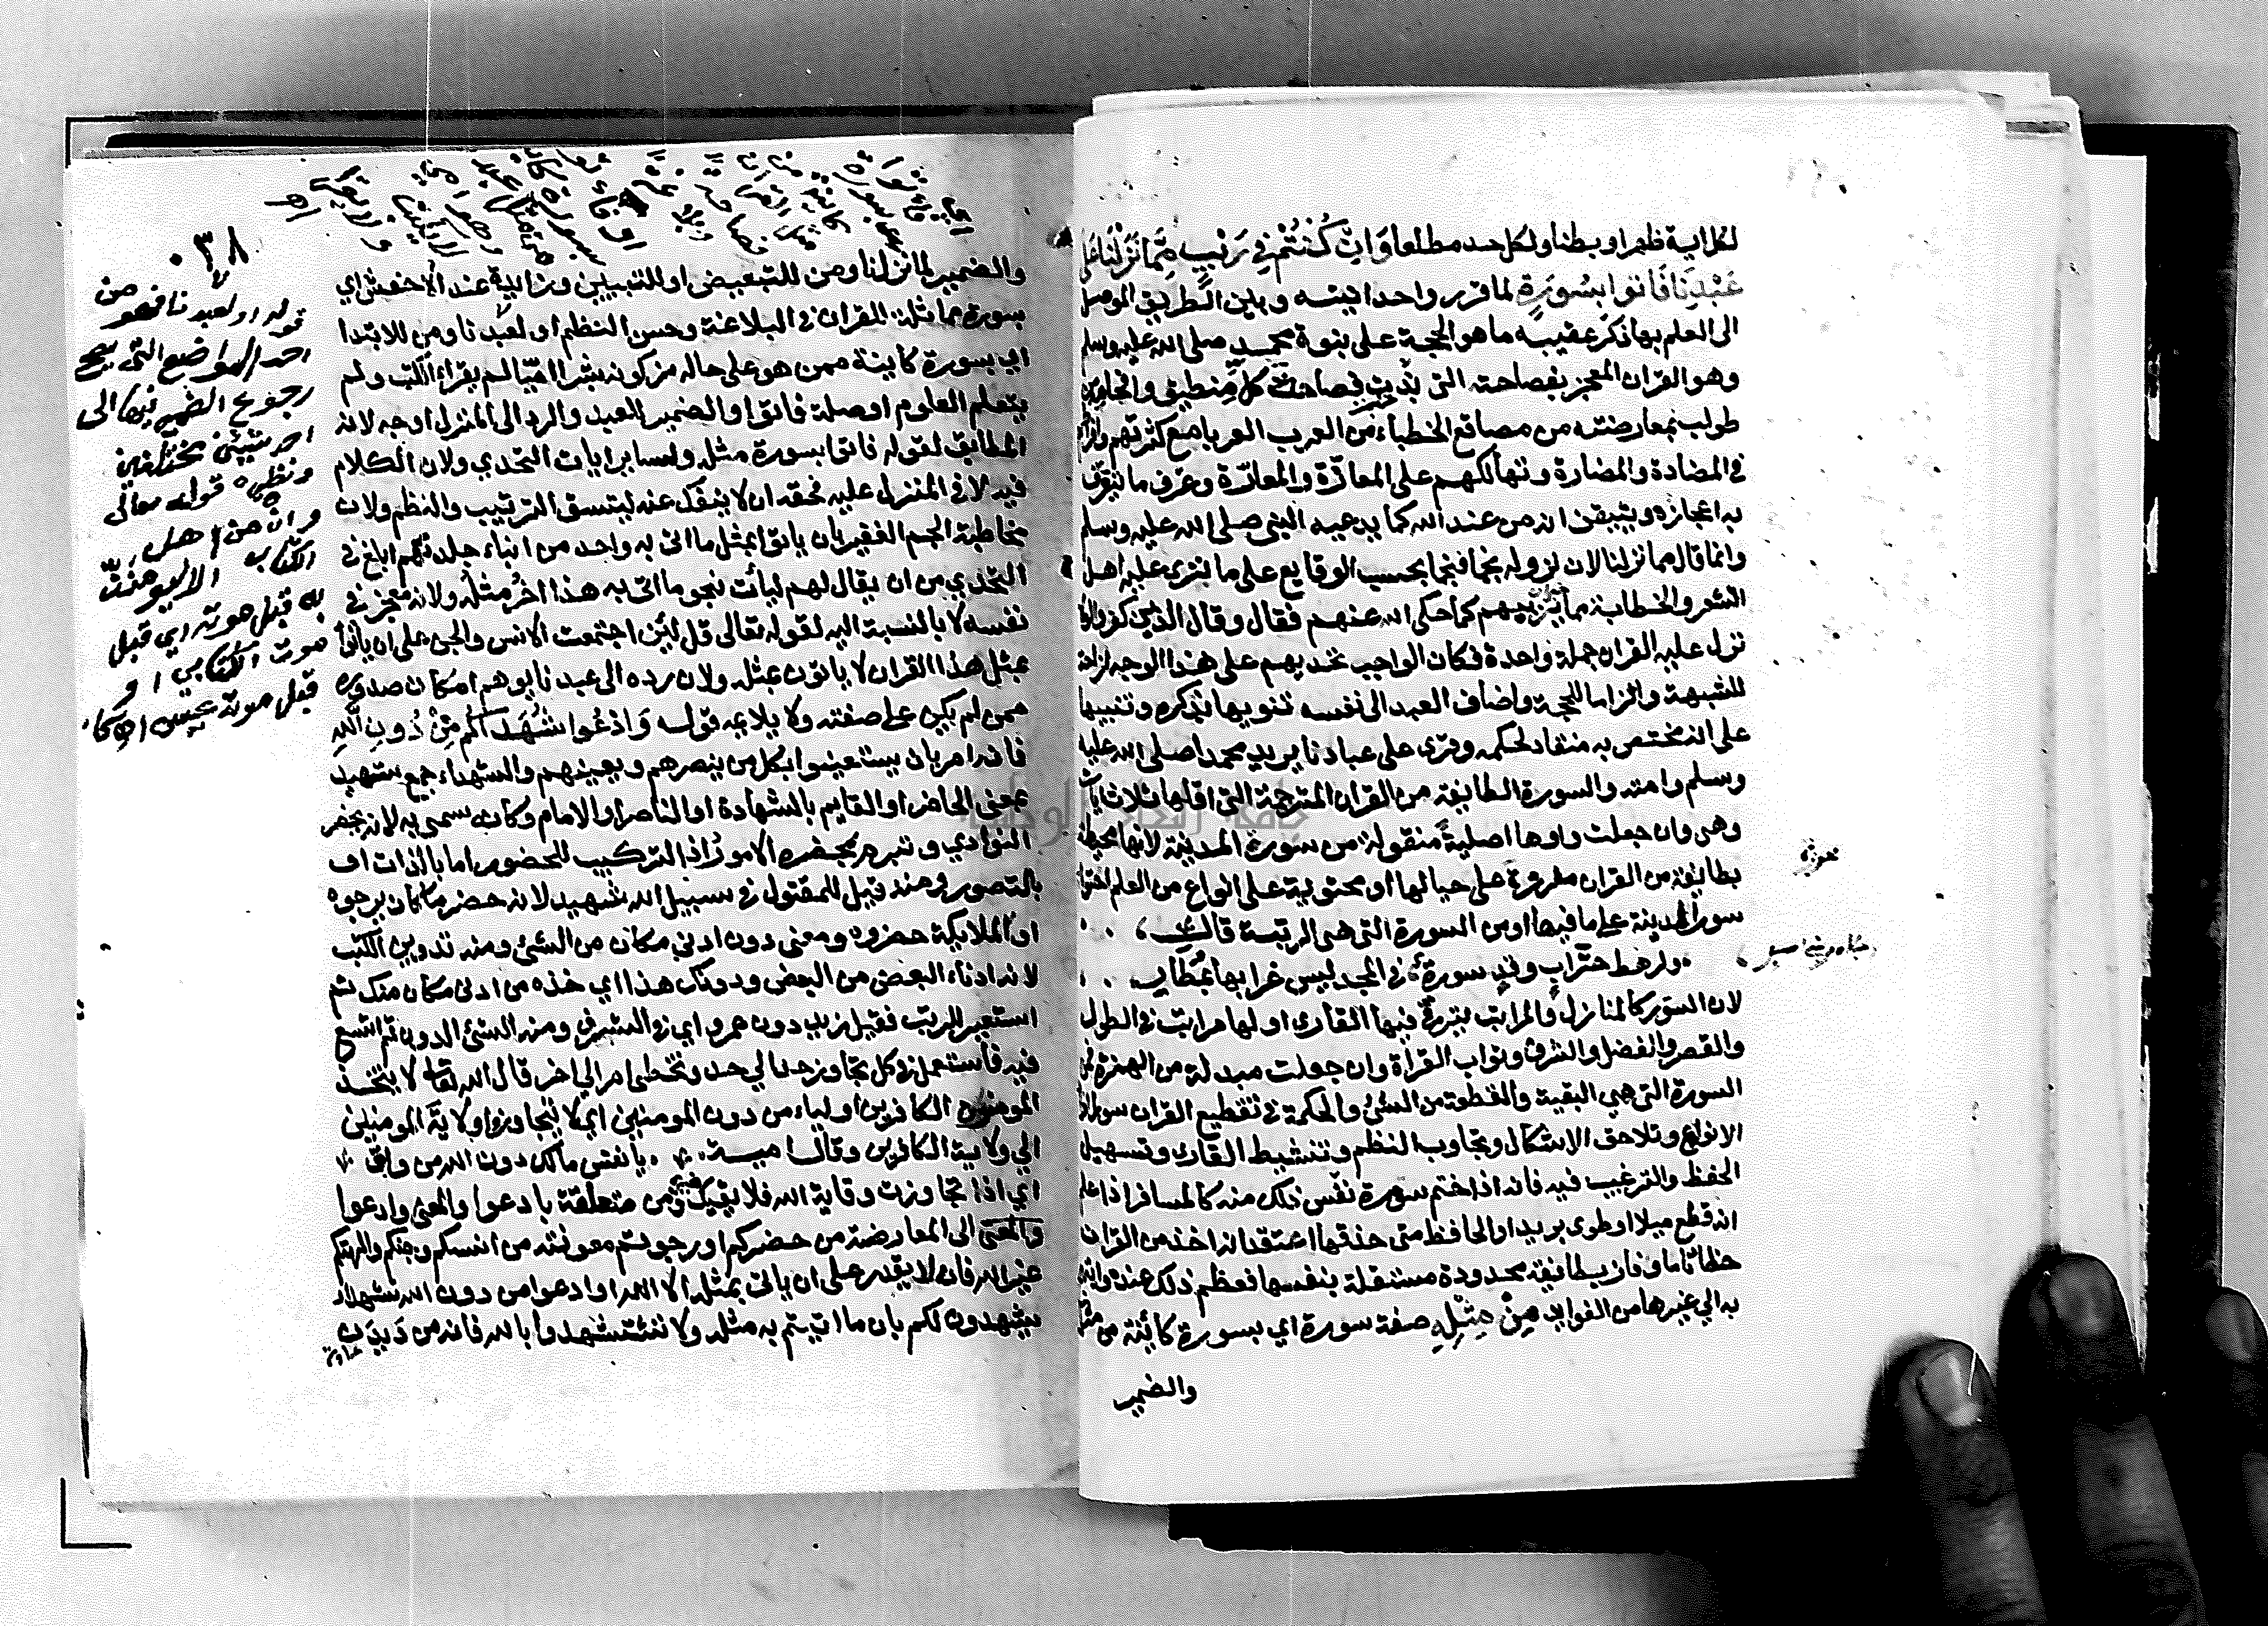 لكل اية ظهرا وبطنا ولكل حد مطلعا وَاِنْ كُنْتُمْ فِي رَيْبٍ مِمَّا نَزَّلْنَا عَلَى
عَبْدِنَا فَأتوا بسُورَةٍ لما قرر واحدانيته وبين الطريق الموصل
الى العلم بها ذكر عقيبه ما هو الحجة على نبوة محمد صلى الله عليه وسلم
وهو القران المعجز بفصاحته التى بذت فصاحة كل منطيق وافحامه من
طولب بمعارضته من مصاقع الخطباء من العرب العربا مع كثرتهم وافراطهم
فى المضادة والمضارة وتهالكهم على المعازّة والمعارّة وعرف ما يتعرف
به اعجازه ويتيقن انه من عند الله كما يدعيه النبى صلى الله عليه وسلم
وانما قال مما نزلنا لان نزوله نجما فنجما بحسب الوقايع على ما نرى عليه اهل
الشعر والخطابة مما يريبهم كما حكى الله عنهم فقال وقال الذين كفروا لولا
نزل عليه القران جملة واحدة فكان الواجب تحديهم على هذا الوجه ازاحة
للشبهة والزاما للحجة واضاف العبد الى نفسه تنويها بذكره وتنبيها
على انه مختص به منقاد لحكمه وقرى على عبادنا يريد محمدا صلى الله عليه
وسلم وامته والسورة الطايفة من القران المترجمة التى اقلها ثلاث ايات
وهى وان جعلت واوها اصلية منقولة من سورة المدينة لانها محيطة
بطايفة من القران مفرزة على حيالها او محتوية على انواع من العلم احتواء
سور المدينة على ما فيها او من السورة التى هى الرتبة قال
ولرهط حرّاب وقد سورة فى المجد ليس غرابها بمُطار
لان السور كالمنازل والمراتب يترقى فيها القارى او لها مراتب فى الطول
والقصر والفضل والشرف وثواب القراة وان جعلت مبدلة من الهمزة فمن
السورة التى هى البقية والقطعة من الشئ والحكمة فى تقطيع القران سورا افراد
الانواع وتلاحق الاشكال وتجاوب النظم وتنشيط القارى وتسهيل
الحفظ والترغيب فيه فانه اذا ختم سورة نفّس ذلك منه كالمسافر اذا علم
انه قطع ميلا او طوى بريدا والحافظ متى حذقها اعتقد انه اخذ من القران
حظا تاما وفاز بطايفة محدودة مستقلة بنفسها فعظم ذلك عنده وابتهج
به الى غيرها من الفوايد مِنْ مِثْلِهِ صفة سورة اي بسورة كائنة من مثله
والضمير
٠٣٨
والضمير لما نزلنا ومن للتبعيض او للتبيين وزايدة عند الأخفش اي
بسورة مماثلة للقران فى البلاغة وحسن النظم او لعبدنا ومن للابتدا
اي بسورة كاينة ممن هو على حاله من كونه بشرا امّيّا لم يقراء الكتب ولم
يتعلم العلوم او صلة فاتوا والضمير للعبد والرد الى المنزل اوجه لانه
المطابق لقوله فاتوا بسورة مثله ولساير ايات التحدي ولان الكلام
فيه لا فى المنزل عليه فحقه ان لا ينفك عنه ليتسق الترتيب والنظم ولان
مخاطبة الجم الغفير بان ياتوا بمثل ما اتى به واحد من ابناء جلدتهم ابلغ فى
التحدي من ان يقال لهم ليأت بنحو ما اتى به هذا اخرُ مثله ولانه معجز فى
نفسه لا بالنسبة اليه لقوله تعالى قل لئن اجتمعت الانس والجن على ان ياتوا
بمثل هذا القران لا ياتون بمثله ولان رده الى عبدنا يوهم امكان صدوره
ممن لم يكن على صفته ولا يلايمه قوله وَادْعُوا شُهَدَاكُمْ مِنْ دُونِ اللهِ
فانه امر بان يستعينوا بكل من ينصرهم ويعينهم والشهداء جمع شهيد
بمعنى الحاضر او القايم بالشهادة او الناصر او الامام وكانه سمى به لانه يحضر
النوادي وتبرم بمحضره الامور اذ التركيب للحضور اما بالذات او
بالتصور ومنه قيل للمقتول فى سبيل الله شهيد لانه حضر ما كان يرجوه
او الملايكة حضروه ومعنى دون ادنى مكان من الشئ ومنه تدوين الكتب
لانه ادناء البعض من البعض ودونك هذا اي خذه من ادنى مكان منك ثم
استعير للرتب فقيل زيد دون عمرو اي فى الشرف ومنه الشئ الدون ثم اتسع
فيه فاستعمل فى كل تجاوز حد الى حد وتخطى امر الى اخر قال الله تعالى لا يتخذ
المومنون الكافرين اولياء من دون المومنين اي لا يتجاوزوا ولاية المومنين
الى ولاية الكافرين وقال امية يا نفس مالك دون الله من واق
اي اذا تجاوزت وقاية الله فلا يقيك ومن متعلقة بادعوا والمعنى وادعوا
والمعنى الى المعارضة من حضركم او رجوتم معونته من انسكم وجنكم والهتكم
غير الله فانه لا يقدر على ان ياتى بمثله الا الله او ادعوا من دون الله شهداء
يشهدون لكم بان ما اتيتم به مثله ولا تستشهدوا بالله فانه من دَيدَن
قوله او لعبدنا فهو من
احد المواضع التى يصح
رجوع الضمير فيها الى
احد شيئين مختلفين
ونظيره قوله تعالى
وان من اهل
الكتاب الا ليومنن
به قبل موته اي قبل
موت الكتابي او
قبل موت عيسى